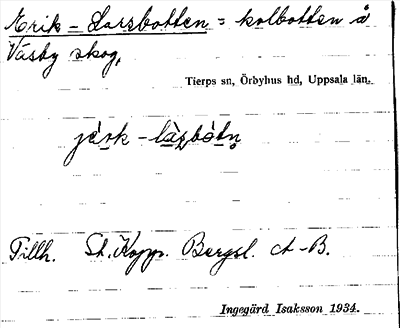 Erik-Larsbotten = kolbotten å
Väsby skog,
Tierps sn, Örbyhus hd, Uppsala län.
jä̀rk-làsbòtn̥
Tillh. St. Kopp. Bergsl. A-B.
Ingegärd Isaksson 1934.